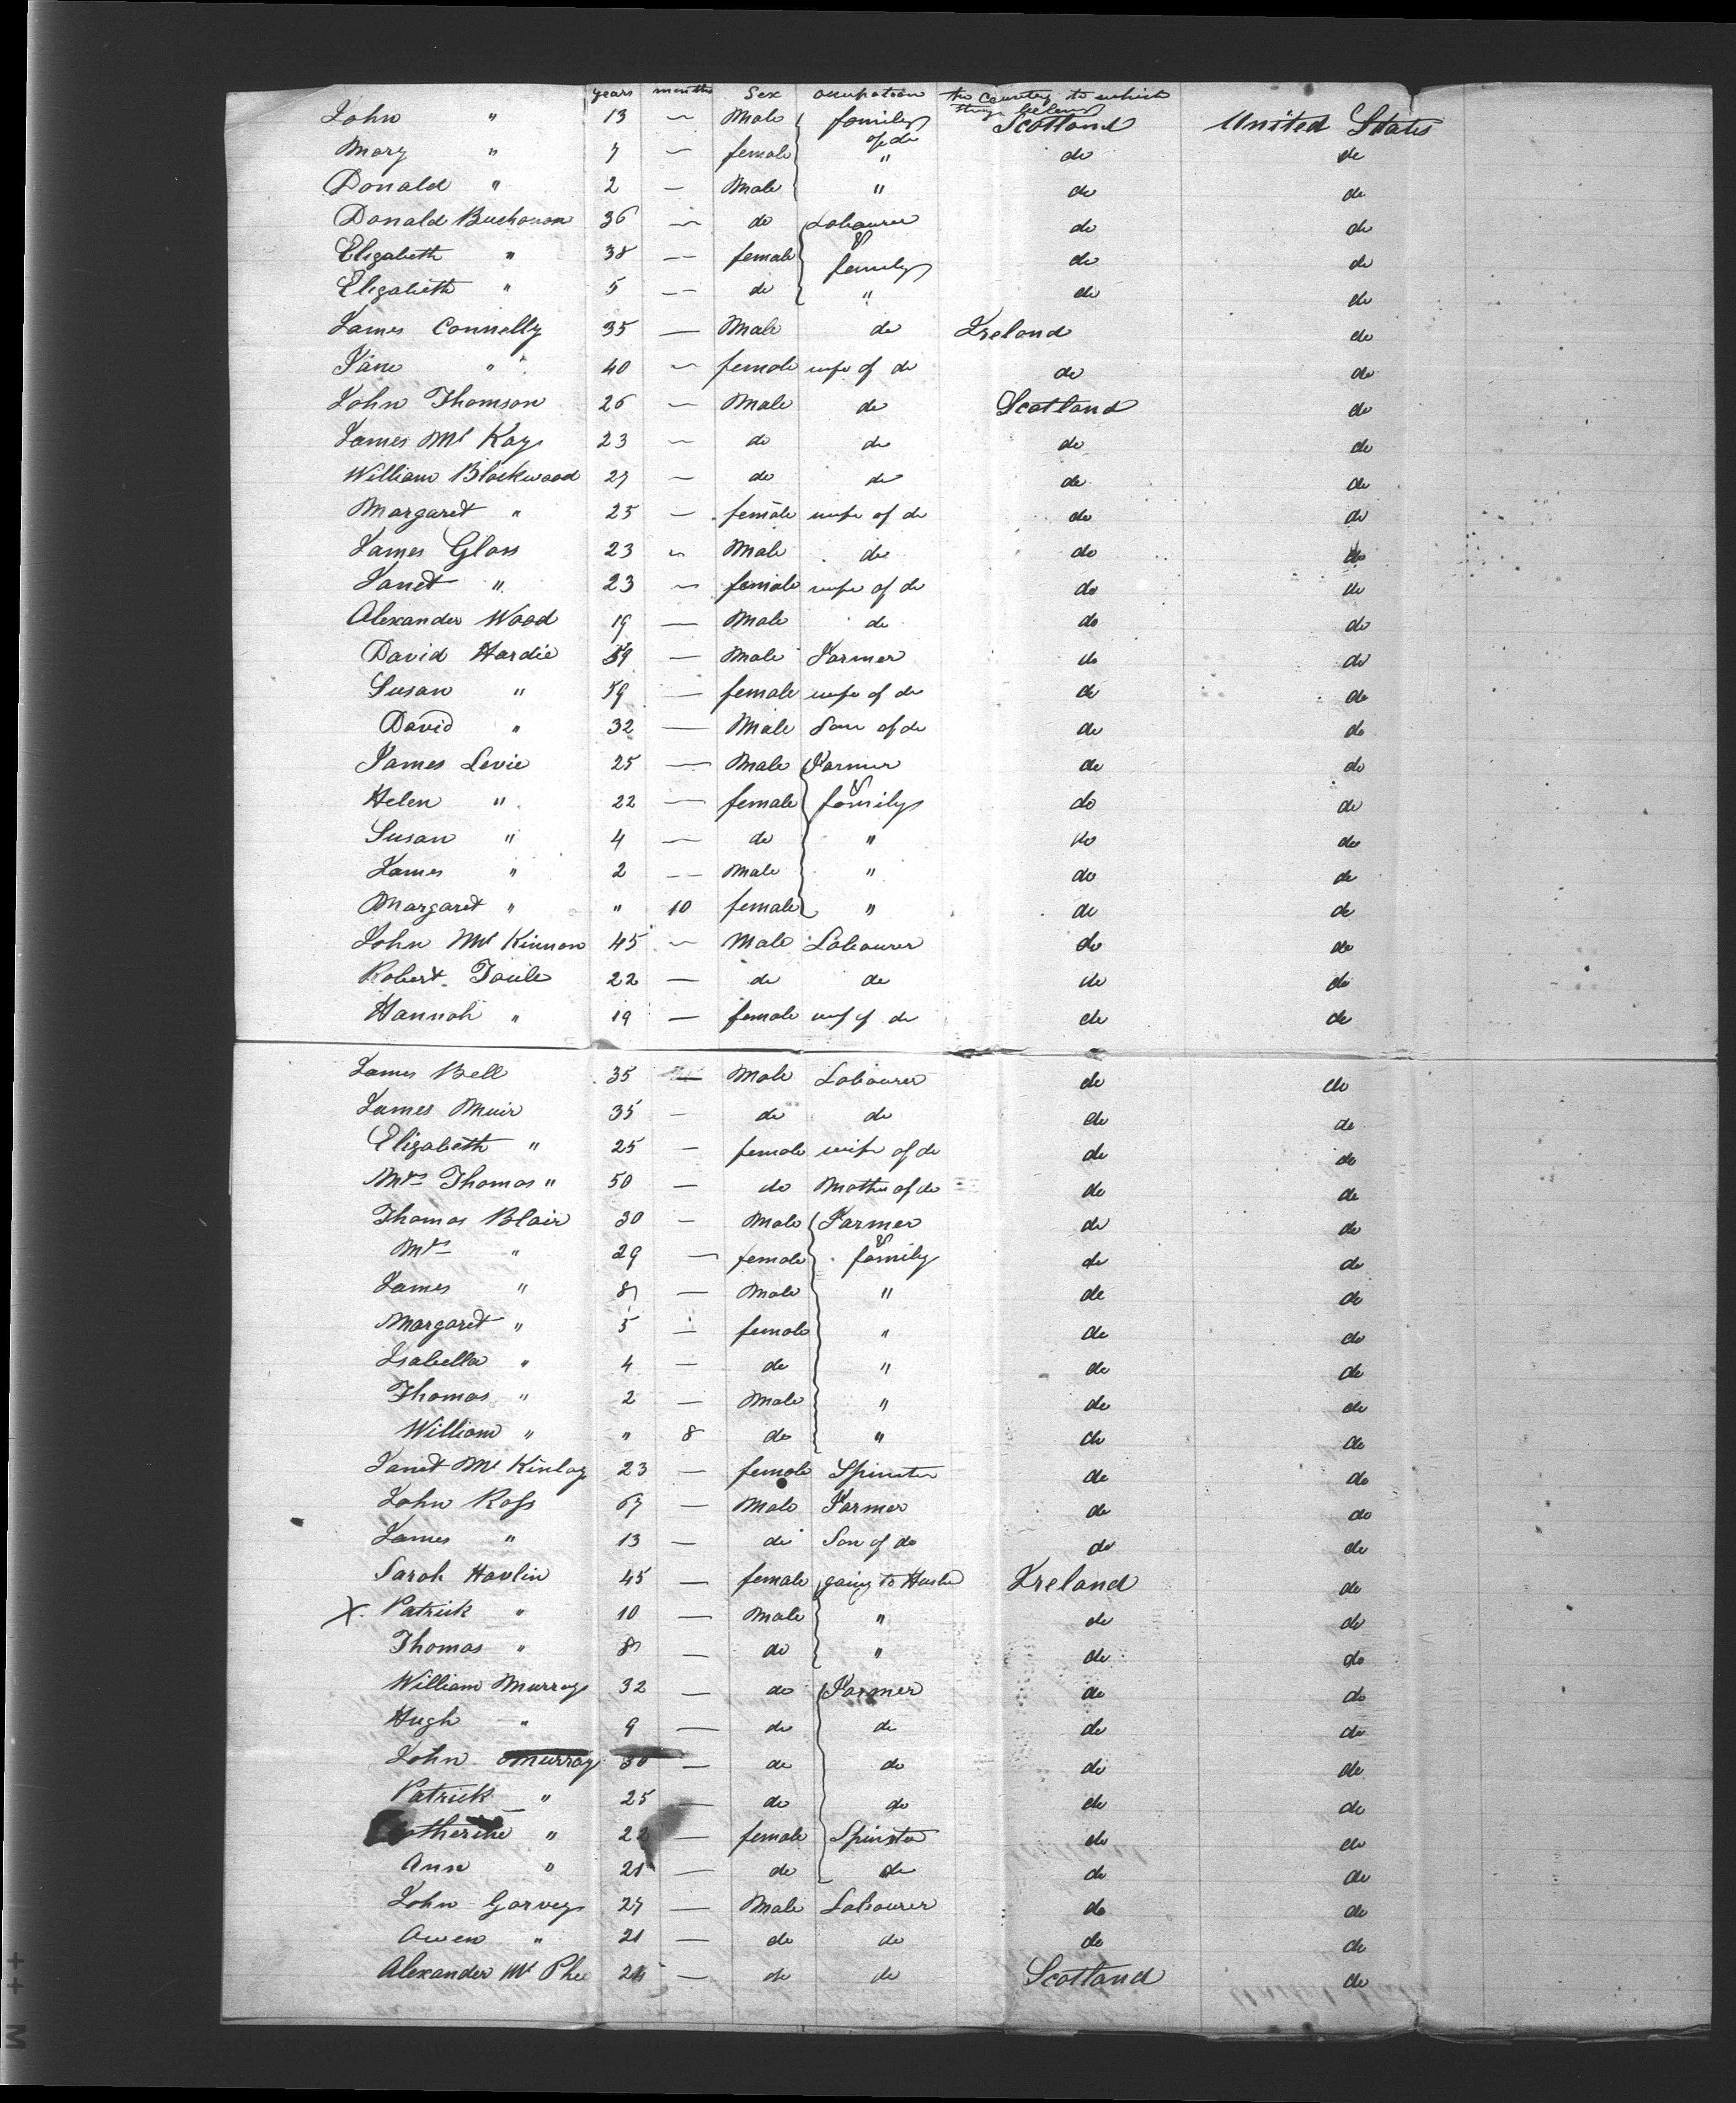 years months Sex occupation the Country to which they belong
John " 13 — Male family of do Scotland United States
Mary " 7 — female " do do
Donald " 2 — Male " do do
Donald Buchanan 36 — do Labourer do do
Elizabeth " 38 — female & family do do
Elizabeth " 5 — do " do do
James Connelly 35 — Male do Ireland do
Jane " 40 — female wife of do do do
John Thomson 26 — Male do Scotland do
James Mc Kay 23 — do do do do
William Blackwood 27 — do do do do
Margaret " 25 — female wife of do do do
James Glass 23 — Male do do do
Janet " 23 — female wife of do do do
Alexander Wood 19 — Male do do do
David Hardie 59 — Male Farmer do do
Susan " 59 — female wife of do do do
David " 32 — Male Son of do do do
James Levie 25 — Male Farmer do do
Helen " 22 — female & family do do
Susan " 4 — do " do do
James " 2 — Male " do do
Margaret " " 10 female " do do
John Mc Kinnon 45 — Male Labourer do do
Robert 22 — do do do do
Hannah " 19 — female wife of do do do
James Bell 35 — Male Labourer do do
James Muir 35 — do do do do
Elizabeth " 25 — female wife of do do do
Mrs Thomas " 50 — do Mother of do do do
Thomas Blair 30 — Male Farmer do do
Mrs " 29 — female & family do do
James " 8 — Male " do do
Margaret " 5 — female " do do
Isabella " 4 — do " do do
Thomas " 2 — Male " do do
William " " 8 do " do do
Janet Mc Kinlay 23 — female Spinster do do
John Ross 67 — Male Farmer do do
James " 13 — do Son of do do do
Sarah Havlin 45 — female going to Husbd Ireland do
X Patrick " 10 — Male " do do
Thomas " 8 — do " do do
William Murray 32 — do Farmer do do
Hugh " 9 — do do do do
John Murray 30 — do do do do
Patrick " 25 — do do do do
Catherine " 22 — female Spinster do do
Ann " 21 — do do do do
John Garvey 27 — Male Labourer do do
Owen " 21 — do do do do
Alexander Mc Phee 24 — do do Scotland do